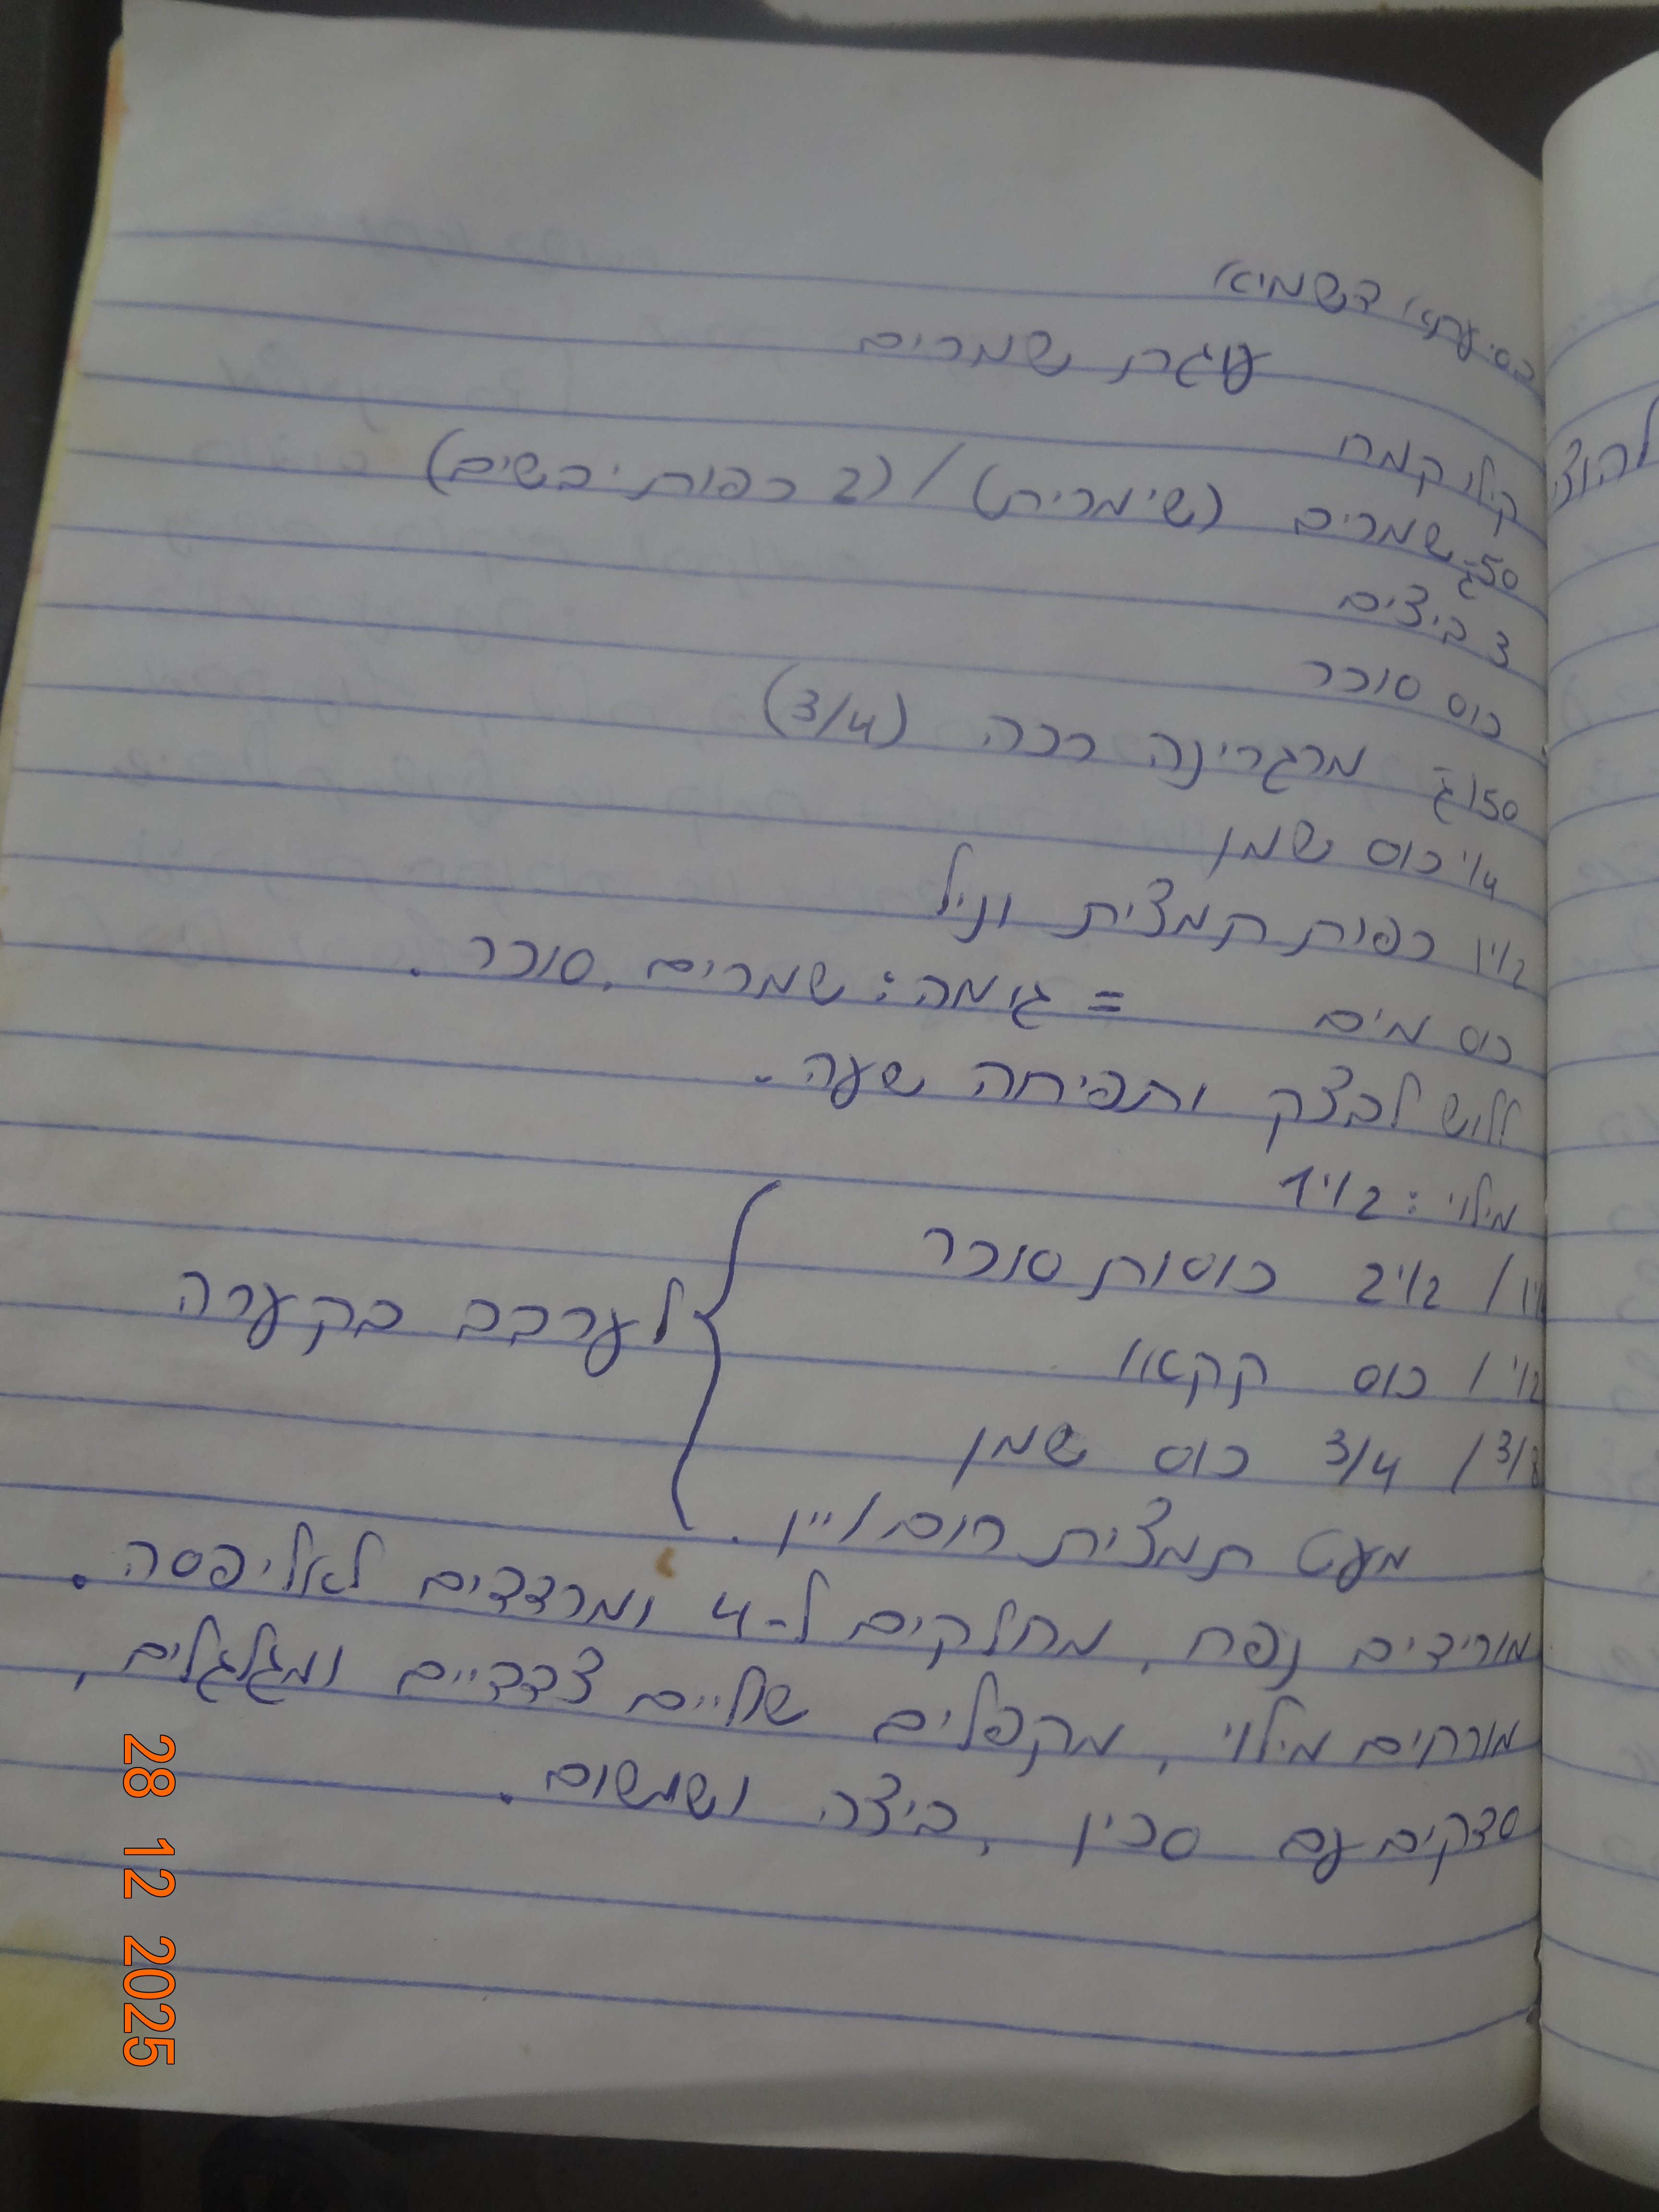 בסיעתא דשמיא
עוגת שמרים
קילו קמח
50ג' שמרים (שימרית) / (2 כפות יבשים)
3 ביצים
כוס סוכר
150ג' מרגרינה רכה (3/4)
1/4 כוס שמן
1/2 כפות תמצית וניל
כוס מים = גומה: שמרים, סוכר.
ללוש לבצק ותפיחה שעה.
מילוי: 1/2 1
/ 2 1/2 כוסות סוכר
1/2 / כוס קקאו
3/8 / 3/4 כוס שמן
מעט תמצית רום/יין.
לערבב בקערה
מורידים נפח, מחלקים ל-4 ומרדדים לאליפסה.
מורחים מילוי, מקפלים שוליים צדדיים ומגלגלים,
סדקים עם סכין, ביצה ושומשום.
28 12 2025